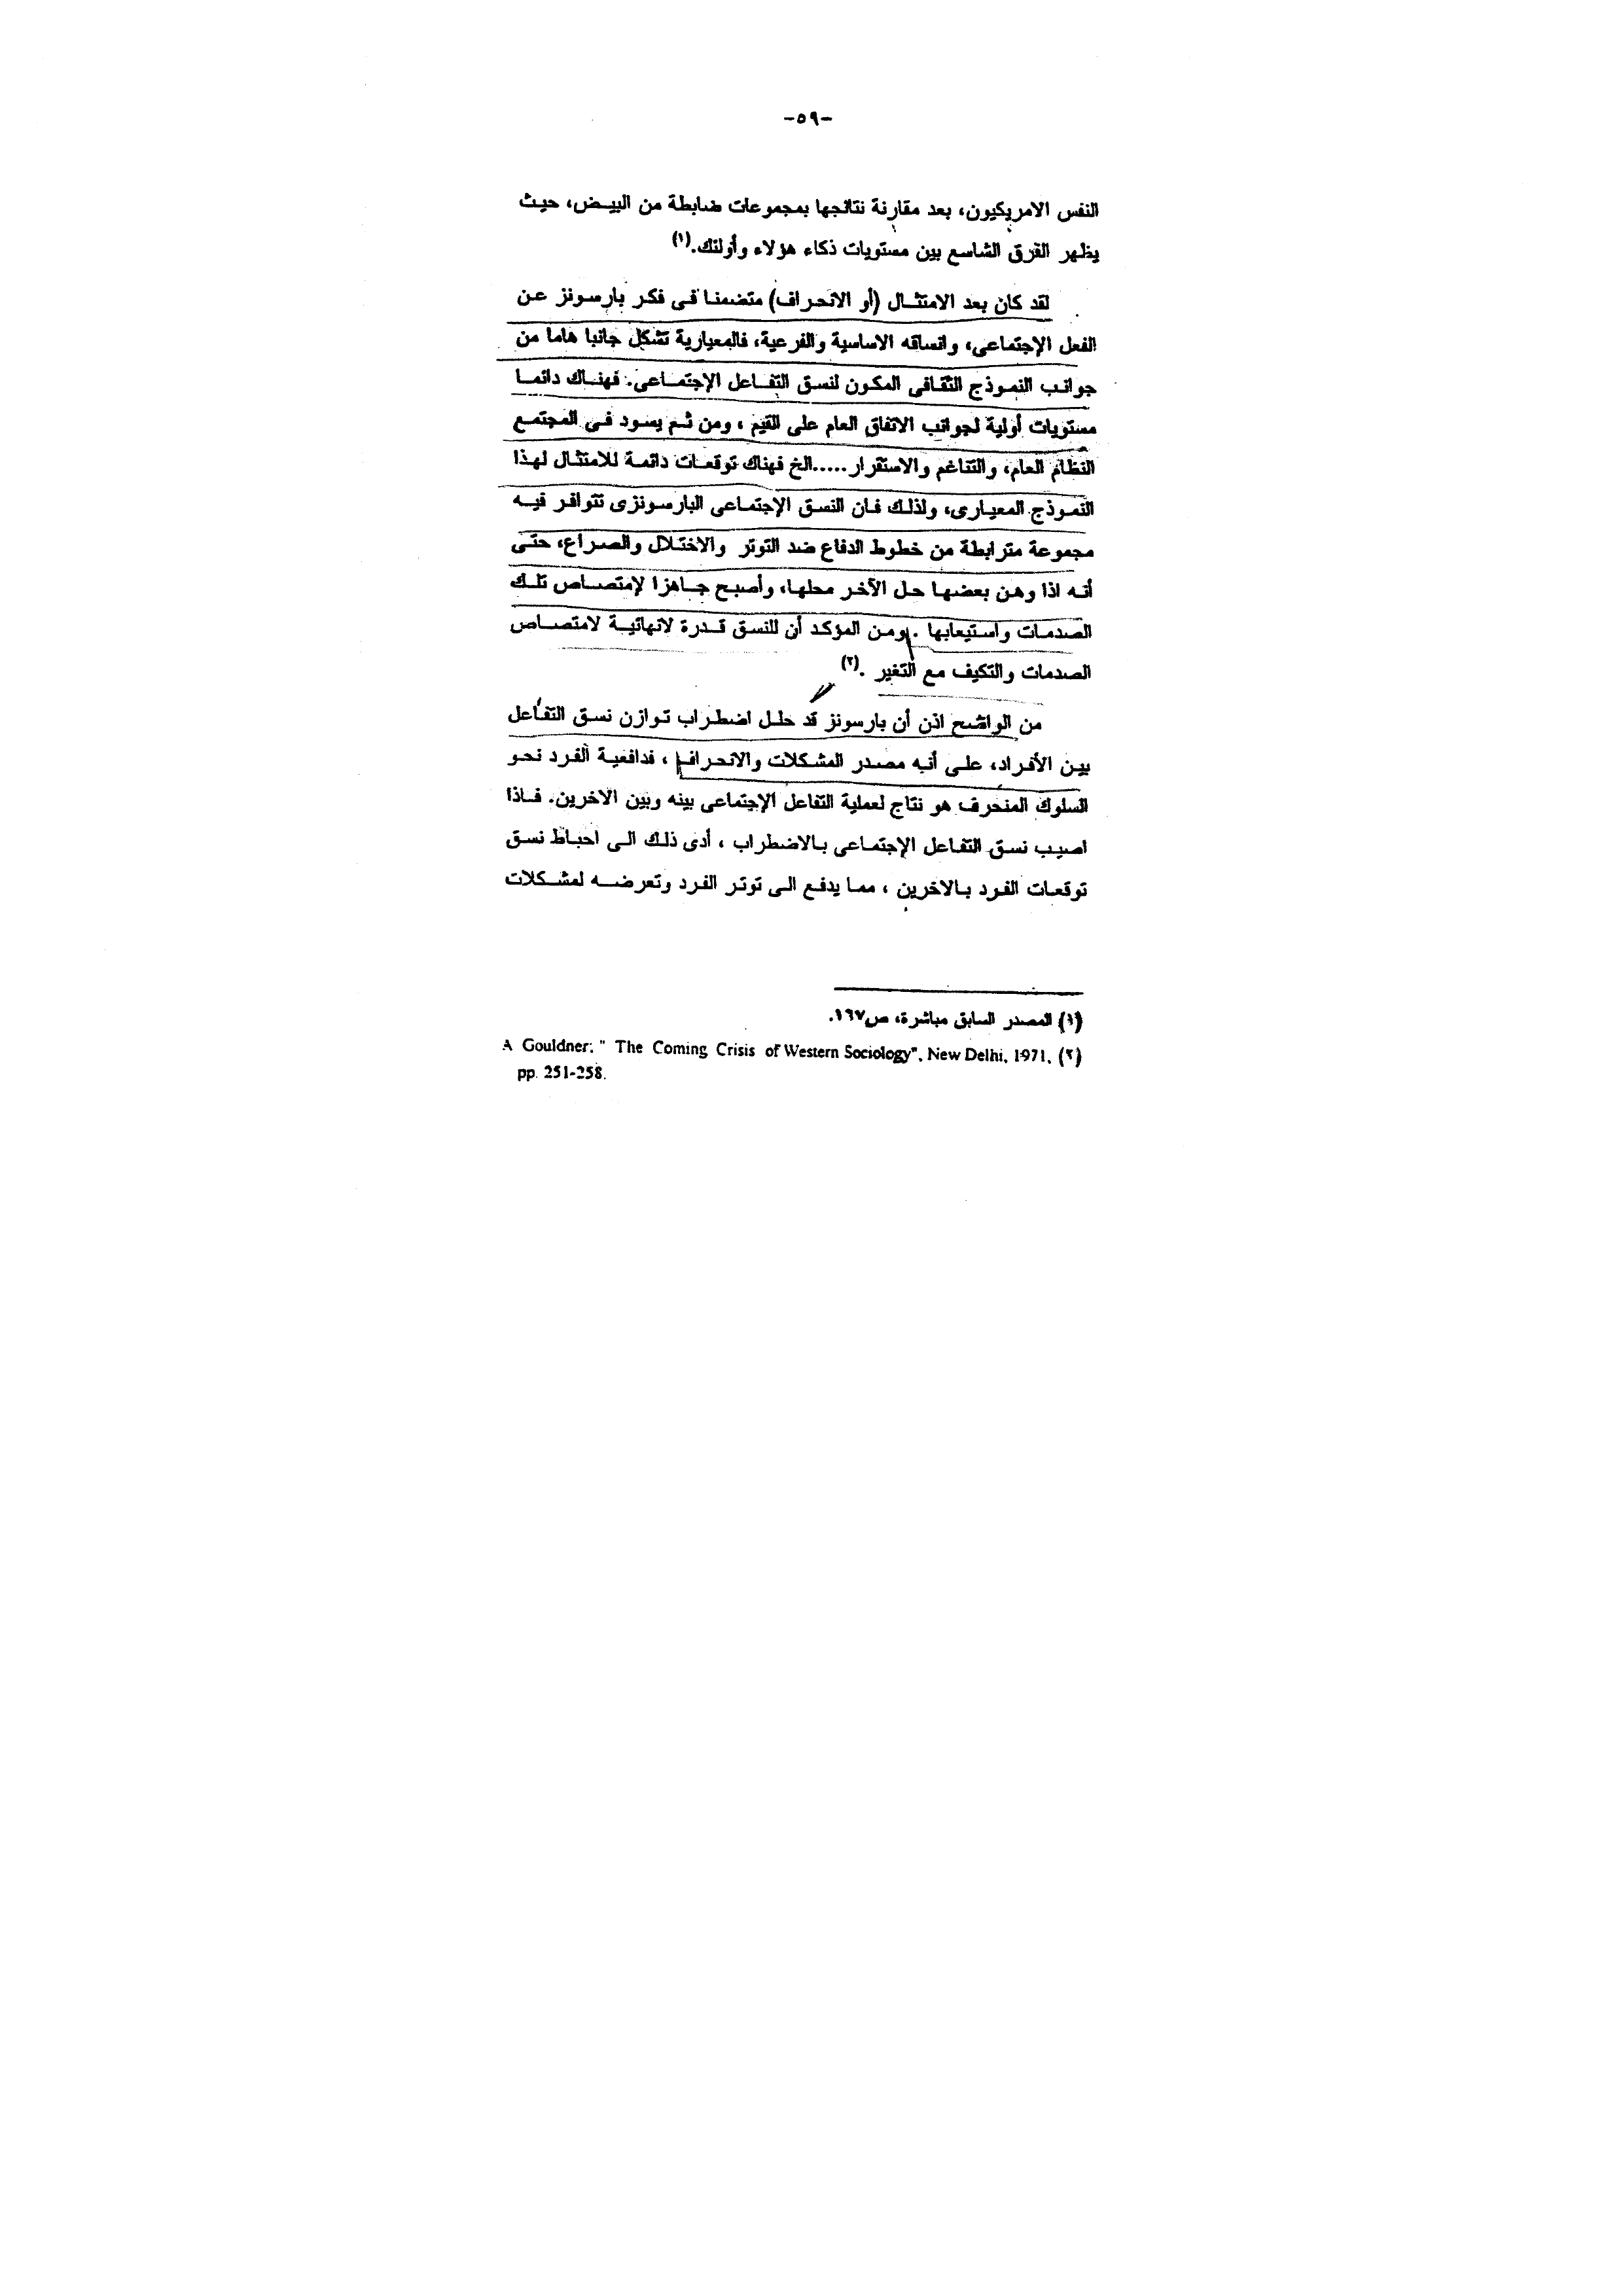 -٥٩-
النفس الامريكيون، بعد مقارنة نتائجها بمجموعات ضابطة من البيض، حيث
يظهر الفرق الشاسع بين مستويات ذكاء هؤلاء وأولئك.(١)
لقد كان بعد الامتثال (أو الانحراف) متضمنا فى فكر بارسونز عن
الفعل الإجتماعى، وانساقه الاساسية والفرعية، فالمعيارية تشكل جانبا هاما من
جوانب النموذج الثقافى المكون لنسق التفاعل الإجتماعى. فهناك دائما
مستويات أولية لجوانب الاتفاق العام على القيم ، ومن ثم يسود فى المجتمع
النظام العام، والتناغم والاستقرار.....الخ فهناك توقعات دائمة للامتثال لهذا
النموذج المعيارى، ولذلك فان النسق الإجتماعى البارسونزى تتوافر فيه
مجموعة مترابطة من خطوط الدفاع ضد التوتر والاختلال والصراع، حتى
أنه اذا وهن بعضها حل الآخر محلها، وأصبح جاهزا لإمتصاص تلك
الصدمات واستيعابها . ومن المؤكد أن للنسق قدرة لانهائية لامتصاص
الصدمات والتكيف مع التغير .(٢)
من الواضح اذن أن بارسونز قد حلل اضطراب توازن نسق التفاعل
بين الأفراد، على أنه مصدر المشكلات والانحراف ، فدافعية الفرد نحو
السلوك المنحرف هو نتاج لعملية التفاعل الإجتماعى بينه وبين الاخرين. فاذا
اصيب نسق التفاعل الإجتماعى بالاضطراب ، أدى ذلك الى احباط نسق
توقعات الفرد بالاخرين ، مما يدفع الى توتر الفرد وتعرضه لمشكلات
(١) المصدر السابق مباشرة، ص١٦٧.
A Gouldner; " The Coming Crisis of Western Sociology", New Delhi, 1971, (٢)
pp. 251-258.